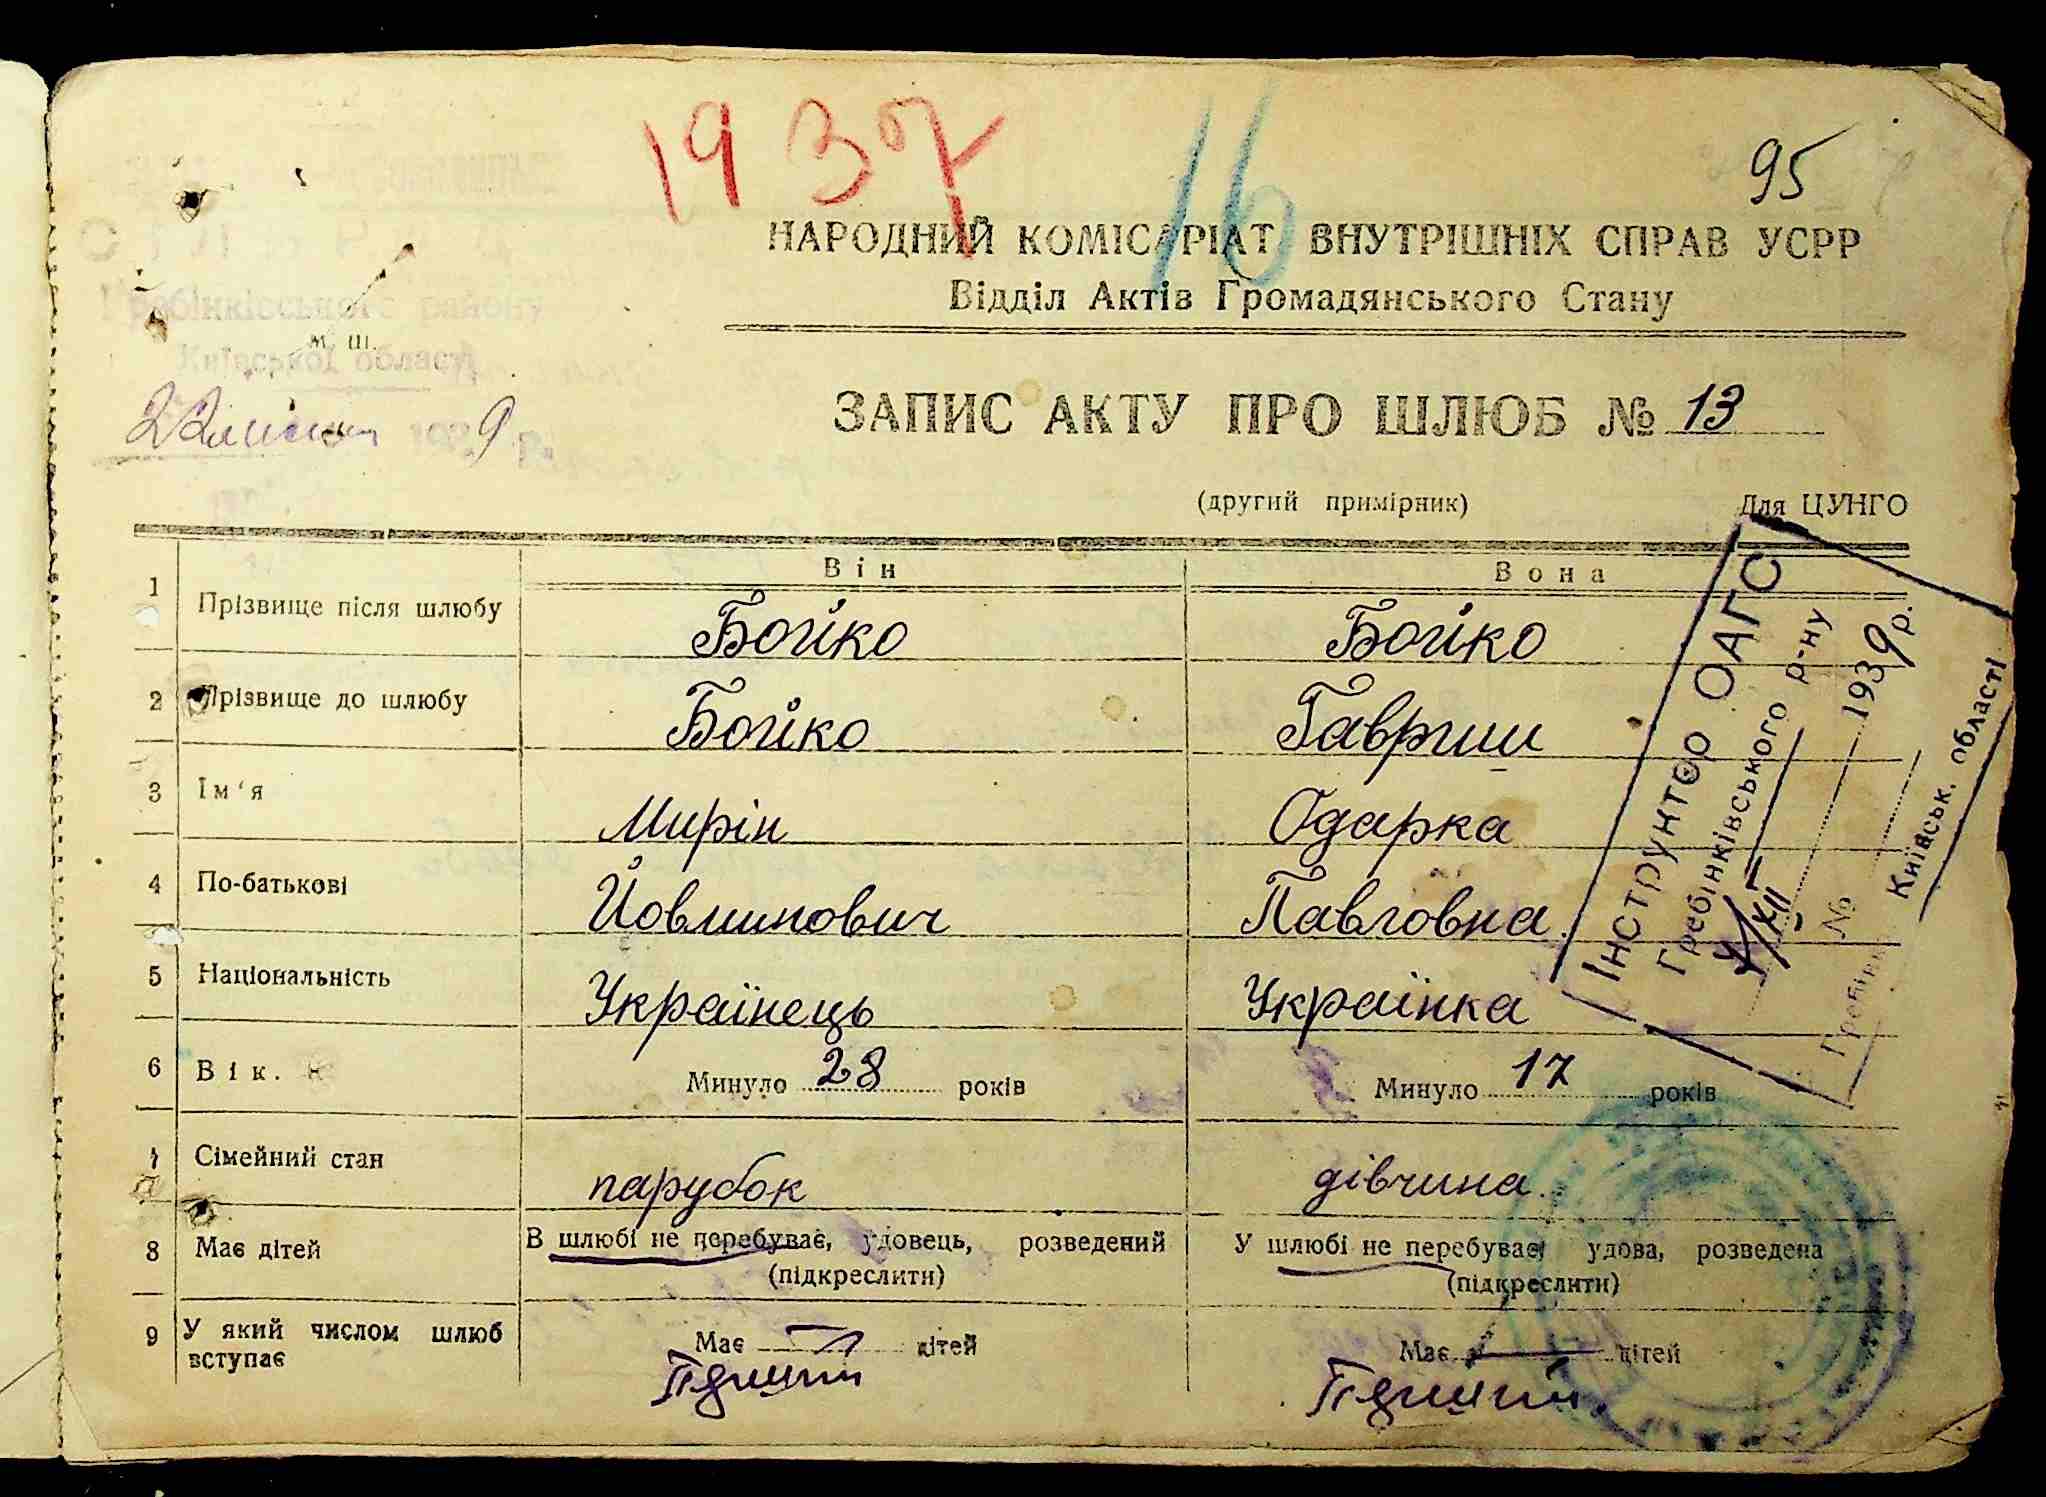 1937
16
95
НАРОДНИЙ КОМІСАРІАТ ВНУТРІШНІХ СПРАВ УСРР
Відділ Актів Громадянського Стану
м. ш.
Київської області
ЗАПИС АКТУ ПРО ШЛЮБ № 13
(другий примірник) Для ЦУНГО
Він Вона
1 Прізвище після шлюбу Бойко Бойко
2 Прізвище до шлюбу Бойко Гавриш
3 Ім'я Мирін Одарка
4 По-батькові Йовмипович Павловна
5 Національність Українець Українка
6 Вік. Минуло 28 років Минуло 17 років
Сімейний стан парубок дівчина
8 Має дітей В шлюбі не перебуває, удовець, розведений У шлюбі не перебуває, удова, розведена
(підкреслити) (підкреслити)
9 У який числом шлюб вступає Має — дітей Має — дітей
Інструктор ОАГС
Гребінківського р-ну
1939 р.
№
Київськ. області